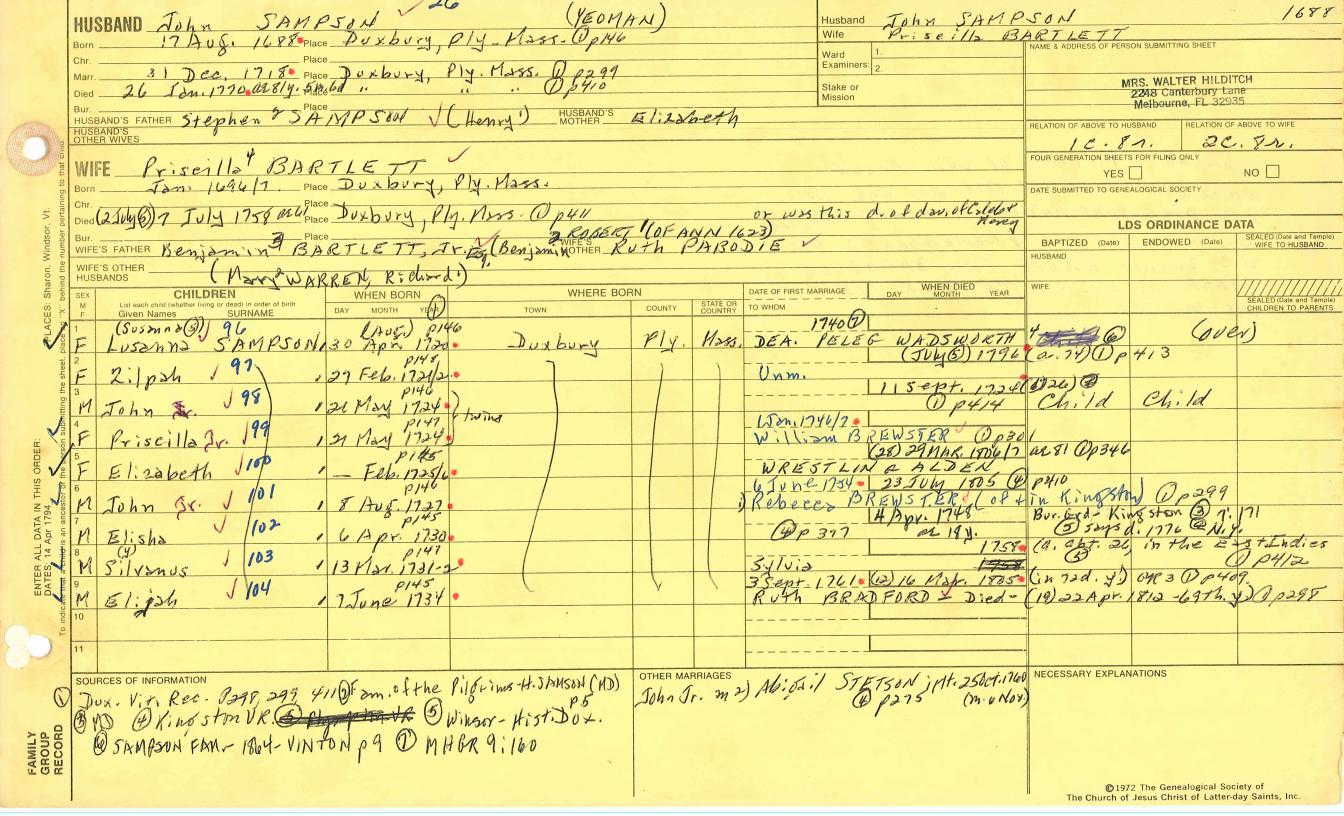 26
HUSBAND John SAMPSON (YEOMAN)
Born 17 Aug. 1688 Place Duxbury, Ply. Mass. ① p146
Chr. Place
Marr. 31 Dec. 1718 Place Duxbury, Ply. Mass. ① p299
Died 26 Jan. 1770 ae 81y. 5m. 6d Place " " " ① p410
Bur. Place
HUSBAND'S FATHER Stephen 2 SAMPSON (Henry 1) HUSBAND'S MOTHER Elizabeth
HUSBAND'S OTHER WIVES
WIFE Priscilla 4 BARTLETT
Born Jan. 1696/7 Place Duxbury, Ply. Mass.
Chr. Place
Died (2 July ⑤) 7 July 1758 ae 61 Place Duxbury, Ply. Mass. ① p411 or was this d. of dau. of
Bur. Place 2 ROBERT 1 (OF ANN 1623)
WIFE'S FATHER Benjamin 3 BARTLETT, Jr. (Benjamin 2 WIFE'S MOTHER Ruth PABODIE
WIFE'S OTHER HUSBANDS (Mary 2 WARREN, Richard 1)
Husband John SAMPSON 1688
Wife Priscilla BARTLETT
Ward Examiners: 1.
2.
Stake or Mission
NAME & ADDRESS OF PERSON SUBMITTING SHEET
MRS. WALTER HILDITCH
2248 Canterbury Lane
Melbourne, FL 32935
RELATION OF ABOVE TO HUSBAND RELATION OF ABOVE TO WIFE
1c. 8r. 2c. 8r.
FOUR GENERATION SHEETS FOR FILING ONLY
YES NO
DATE SUBMITTED TO GENEALOGICAL SOCIETY
LDS ORDINANCE DATA
BAPTIZED (Date) ENDOWED (Date) SEALED (Date and Temple) WIFE TO HUSBAND
HUSBAND
WIFE
SEALED (Date and Temple) CHILDREN TO PARENTS
SEX M F CHILDREN WHEN BORN WHERE BORN DATE OF FIRST MARRIAGE WHEN DIED
List each child (whether living or dead) in order of birth
Given Names SURNAME DAY MONTH YEAR TOWN COUNTY STATE OR COUNTRY TO WHOM DAY MONTH YEAR
1 (Susanna ③) 96 (Aug.) p146 1740 ⑦
F Lusanna SAMPSON 30 Apr. 1720 Duxbury Ply. Mass. DEA. PELEG WADSWORTH 4 ⑥ (over)
2 97 p148 (July ⑤) 1796 (a. 74) ① p413
F Zilpah 27 Feb. 1721/2 Unm.
3 98 p146 11 Sept. 1724 (1726) ②
M John Jr. 21 May 1724 twins ① p414 Child Child
4 99 p147 Jan. 1746/7
F Priscilla Jr. 21 May 1724 William BREWSTER ① p301
5 100 p145 (28) 29 MAR. 1806/7 ae 81 ① p346
F Elizabeth — Feb. 1725/6 WRESTLING ALDEN
6 101 p146 6 June 1754 23 July 1805 ④ p410
M John Jr. 8 Aug. 1727 1) Rebecca BREWSTER (of & in Kingston) ① p299
7 102 p145 4 Apr. 1748 Bur. Grd- Kingston ③ 7: 171
M Elisha 6 Apr. 1730 ④ p377 ae 18y. ⑤ says d. 1776 @ N.Y.
8 (y) 103 p147 1758 (a. abt. 26) in the East Indies
M Silvanus 13 Mar. 1731-2 Sylvia 1758 ⑤ ① p412
9 104 p145 3 Sept. 1761 (12) 16 Mar. 1805 (in 72d. y.) or 3 ① p409
M Elijah 7 June 1734 Ruth BRADFORD - Died- (19) 22 Apr. 1812 - 69th. y) ① p298
10
11
SOURCES OF INFORMATION
① Dux. Vit. Rec. p298, 299, 411 ② Fam. of the Pilgrims-H. SAMSON (MD)
③ MD ④ Kingston VR. ⑤ Plympton VR ⑤ Winsor - Hist. Dux. p5
⑥ SAMPSON FAM- 1864- VINTON p9 ⑦ MHGR 9: 160
OTHER MARRIAGES
John Jr. m 2) Abigail STETSON int. 25 Oct. 1760
④ p275 (m. 6 Nov)
NECESSARY EXPLANATIONS
©1972 The Genealogical Society of
The Church of Jesus Christ of Latter-day Saints, Inc.
FAMILY GROUP RECORD
ENTER ALL DATA IN THIS ORDER:
DATES: 14 Apr 1794
PLACES: Sharon, Windsor, Vt.